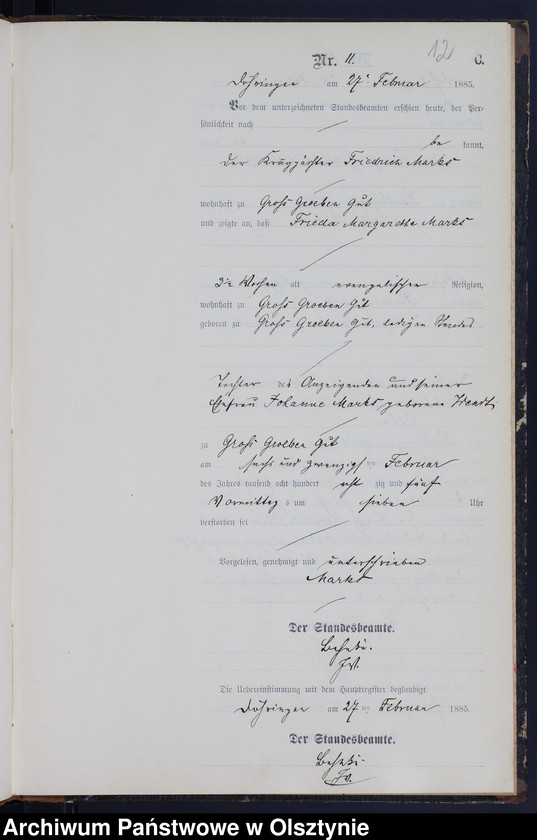 12
Nr. 11. C.
Döhringen am 27t Februar 1885.
Vor dem unterzeichneten Standesbeamten erschien heute, der Per-
sönlichkeit nach
be kannt,
der Krugpächter Friedrich Marks
wohnhaft zu Groß Groeben Gut
und zeigte an, daß Frieda Margarethe Marks
3½ Wochen alt evangelischer Religion,
wohnhaft zu Groß Groeben Gut
geboren zu Groß Groeben Gut, ledigen Standes
Tochter des Anzeigenden und seiner
Ehefrau Johanne Marks geborene
zu Groß Groeben Gut
am sechs und zwanzigsten Februar
des Jahres tausend acht hundert acht zig und fünf
Vormittags um sieben Uhr
verstorben sei
Vorgelesen, genehmigt und unterschrieben
Marks
Der Standesbeamte.
Die Uebereinstimmung mit dem Hauptregister beglaubigt
Döhringen am 27ten Februar 1885.
Der Standesbeamte.
Archiwum Państwowe w Olsztynie